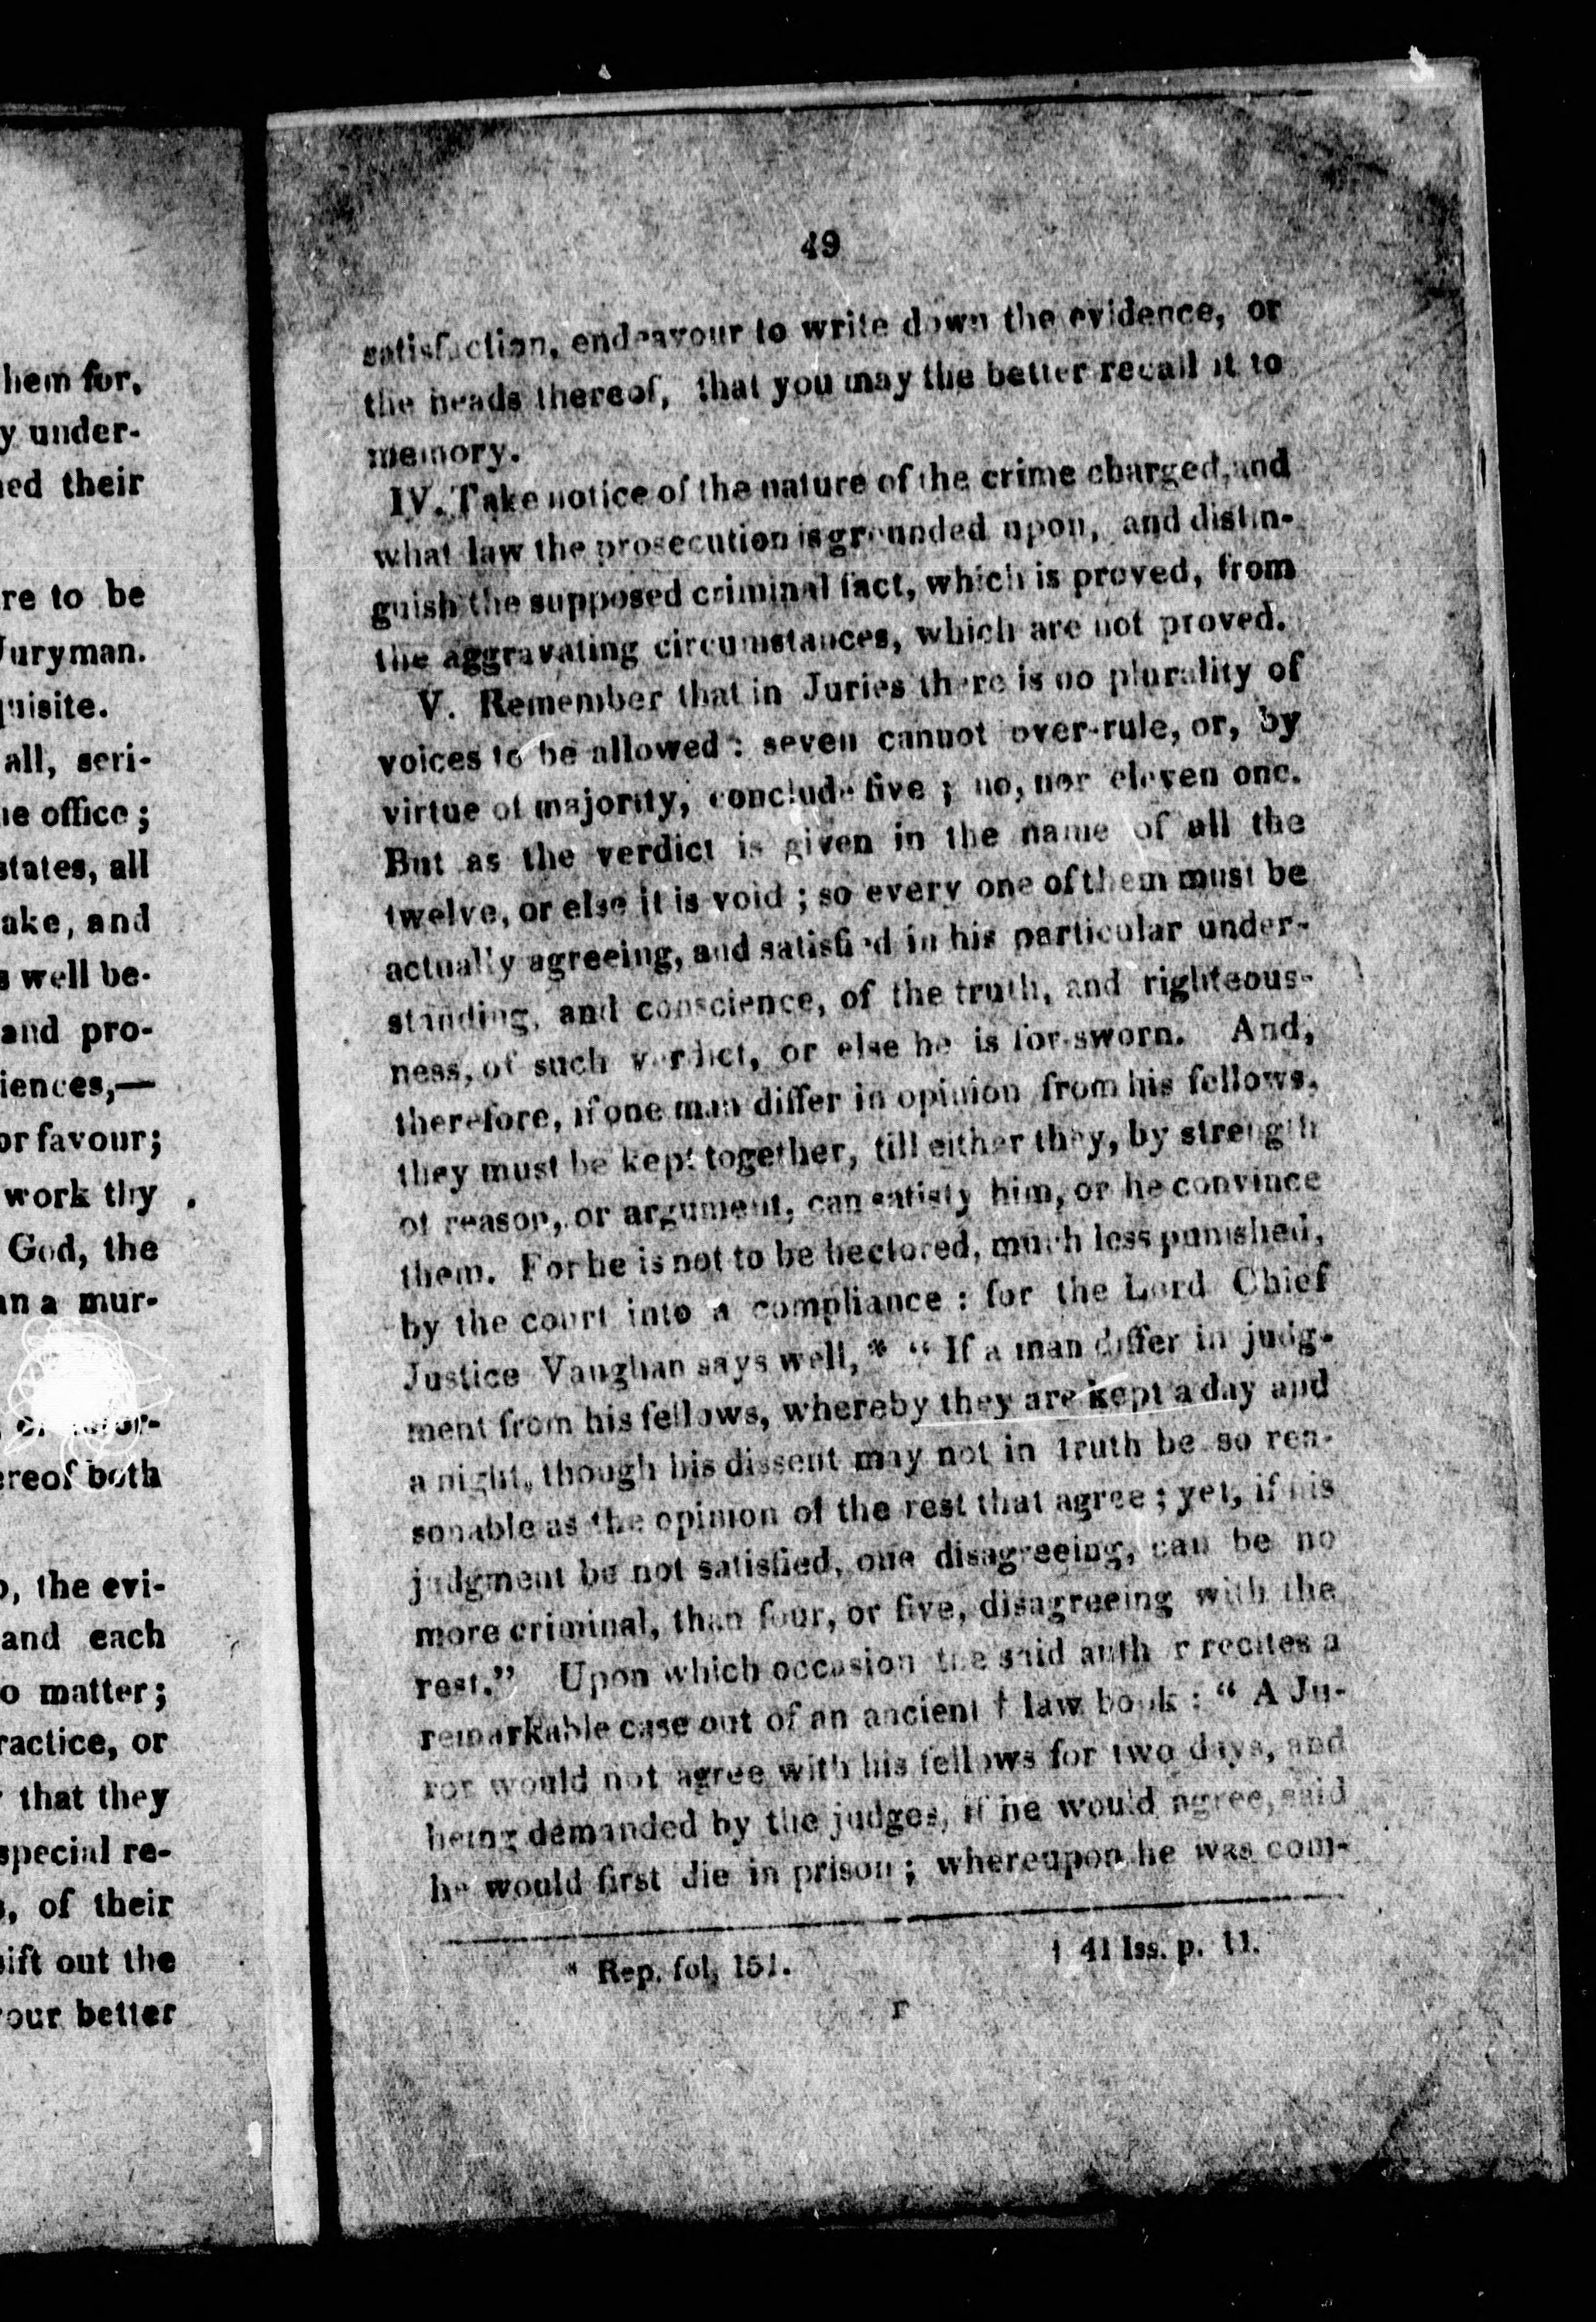 hem for,
y under-
ed their
re to be
Juryman.
quisite.
all, seri-
e office;
states, all
ake, and
s well be-
and pro-
iences,—
or favour;
work thy
God, the
an a mur-
ereof both
o, the evi-
and each
o matter;
ractice, or
that they
special re-
s, of their
sift out the
your better
49
satisfaction, endeavour to write down the evidence, or
the heads thereof, that you may the better recall it to
memory.
IV. Take notice of the nature of the crime charged, and
what law the prosecution is grounded upon, and distin-
guish the supposed criminal fact, which is proved, from
the aggravating circumstances, which are not proved.
V. Remember that in Juries there is no plurality of
voices to be allowed: seven cannot over-rule, or, by
virtue of majority, conclude five; no, nor eleven one.
But as the verdict is given in the name of all the
twelve, or else it is void; so every one of them must be
actually agreeing, and satisfied in his particular under-
standing, and conscience, of the truth, and righteous-
ness, of such verdict, or else he is for-sworn. And,
therefore, if one man differ in opinion from his fellows,
they must be kept together, till either they, by strength
of reason, or argument, can satisfy him, or he convince
them. For he is not to be hectored, much less punished,
by the court into a compliance: for the Lord Chief
Justice Vaughan says well,* "If a man differ in judg-
ment from his fellows, whereby they are kept a day and
a night, though his dissent may not in truth be so rea-
sonable as the opinion of the rest that agree; yet, if his
judgment be not satisfied, one disagreeing, can be no
more criminal, than four, or five, disagreeing with the
rest." Upon which occasion the said author recites a
remarkable case out of an ancient † law book: "A Ju-
ror would not agree with his fellows for two days, and
being demanded by the judges, if he would agree, said
he would first die in prison; whereupon he was com-
* Rep. fol. 151. † 41 Iss. p. 11.
F